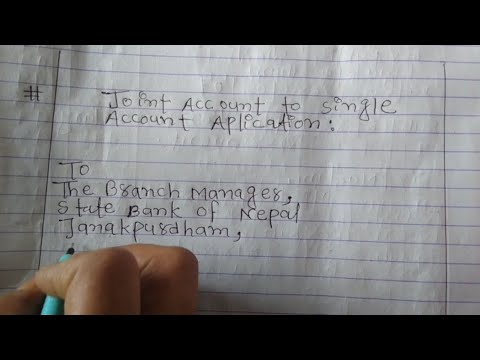 # Joint Account to single
Account Aplication:
To
The Branch Manager,
State Bank of Nepal
Janakpurdham,